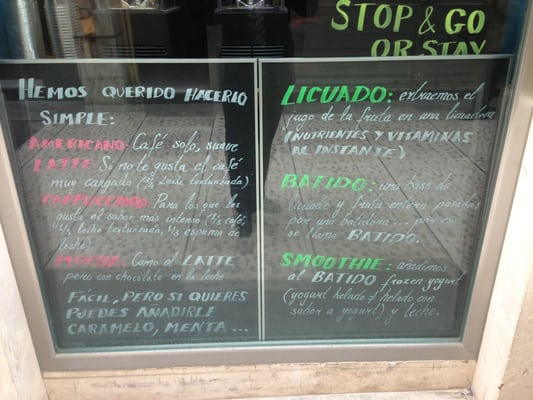 STOP & GO
OR STAY
HEMOS QUERIDO HACERLO
SIMPLE:
AMERICANO: Café solo, suave
LATTE: Si no te gusta el café
muy cargado (²/₃ leche texturizada)
CAPPUCCINO: Para los que les
gusta el sabor más intenso (¹/₃ café,
¹/₃ leche texturizada, ¹/₃ espuma de
leche)
MOCHA: Como el LATTE
pero con chocolate en la leche
FÁCIL, PERO SI QUIERES
PUEDES AÑADIRLE
CARAMELO, MENTA ...
LICUADO: extraemos el
jugo de la fruta en una licuadora
(NUTRIENTES Y VITAMINAS
AL INSTANTE)
BATIDO: una base de
licuado y fruta entera pasadas
por una batidora... por eso
se llama BATIDO.
SMOOTHIE: añadimos
al BATIDO frozen yogurt
(yogurt helado ≠ helado con
sabor a yogurt) y leche.